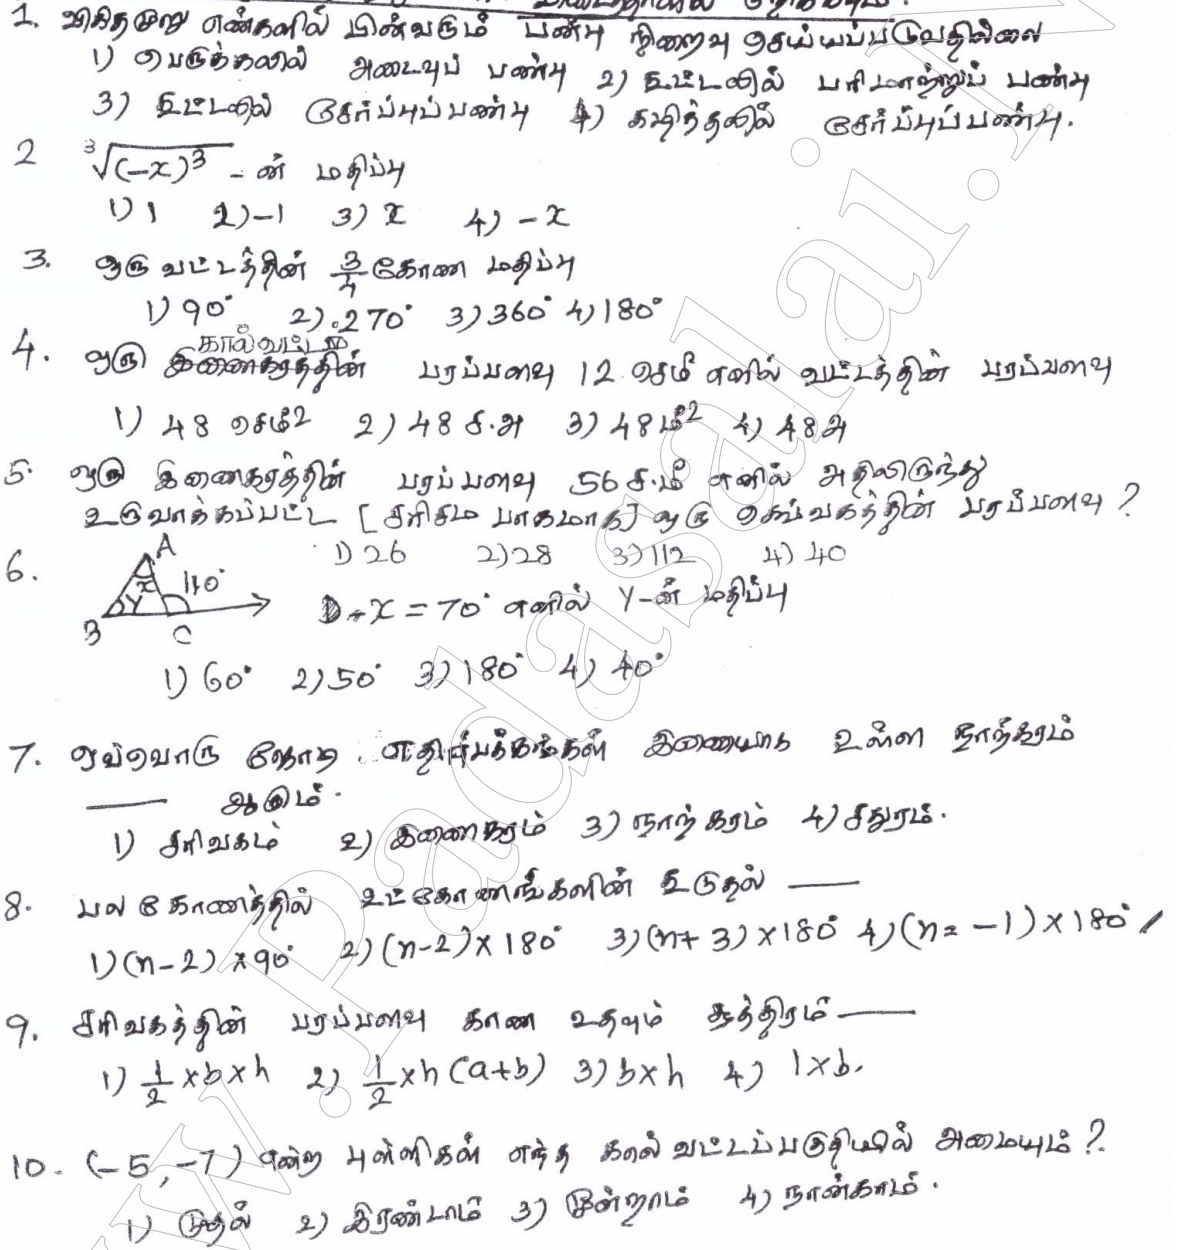 விடைத்தாளில்
1. விகிதமுறு எண்களில் பின்வரும் பண்பு நிறைவு செய்யப்படுவதில்லை
1) பெருக்கலில் அடைவுப் பண்பு 2) கூட்டலில் பரிமாற்றுப் பண்பு
3) கூட்டலில் சேர்ப்புப்பண்பு 4) கழித்தலில் சேர்ப்புப்பண்பு.
2 ∛(-x)³ - ன் மதிப்பு
1) 1 2) -1 3) x 4) - x
3. ஒரு வட்டத்தின் 3/4 கோண மதிப்பு
1) 90° 2) 270° 3) 360° 4) 180°
கால்வட்டம்
4. ஒரு இணைகரத்தின் பரப்பளவு 12 செமீ எனில் வட்டத்தின் பரப்பளவு
1) 48 செமீ2 2) 48 ச.அ 3) 48 மீ² 4) 48 அ
5. ஒரு இணைகரத்தின் பரப்பளவு 56 ச.மீ எனில் அதிலிருந்து
உருவாக்கப்பட்ட [சரிசம பாகமாக] ஒரு செவ்வகத்தின் பரப்பளவு ?
1) 26 2) 28 3) 112 4) 40
6. A x 110° Y B C
x = 70° எனில் Y-ன் மதிப்பு
1) 60° 2) 50° 3) 180° 4) 40°
7. ஒவ்வொரு ஜோடி எதிர்பக்கங்கள் இணையாக உள்ள நாற்கரம்
—— ஆகும்.
1) சரிவகம் 2) இணைகரம் 3) நாற்கரம் 4) சதுரம்.
8. பல கோணத்தில் உட்கோணங்களின் கூடுதல் ——
1) (n-2) × 90° 2) (n-2) × 180° 3) (n+3) × 180° 4) (n= -1) × 180°
9. சரிவகத்தின் பரப்பளவு காண உதவும் சூத்திரம் ——
1) 1/2 × b × h 2) 1/2 × h (a+b) 3) b × h 4) l × b.
10. (-5, -7) என்ற புள்ளிகள் எந்த கால் வட்டப்பகுதியில் அமையும் ?
1) முதல் 2) இரண்டாம் 3) மூன்றாம் 4) நான்காம்.
www.Padasalai.N